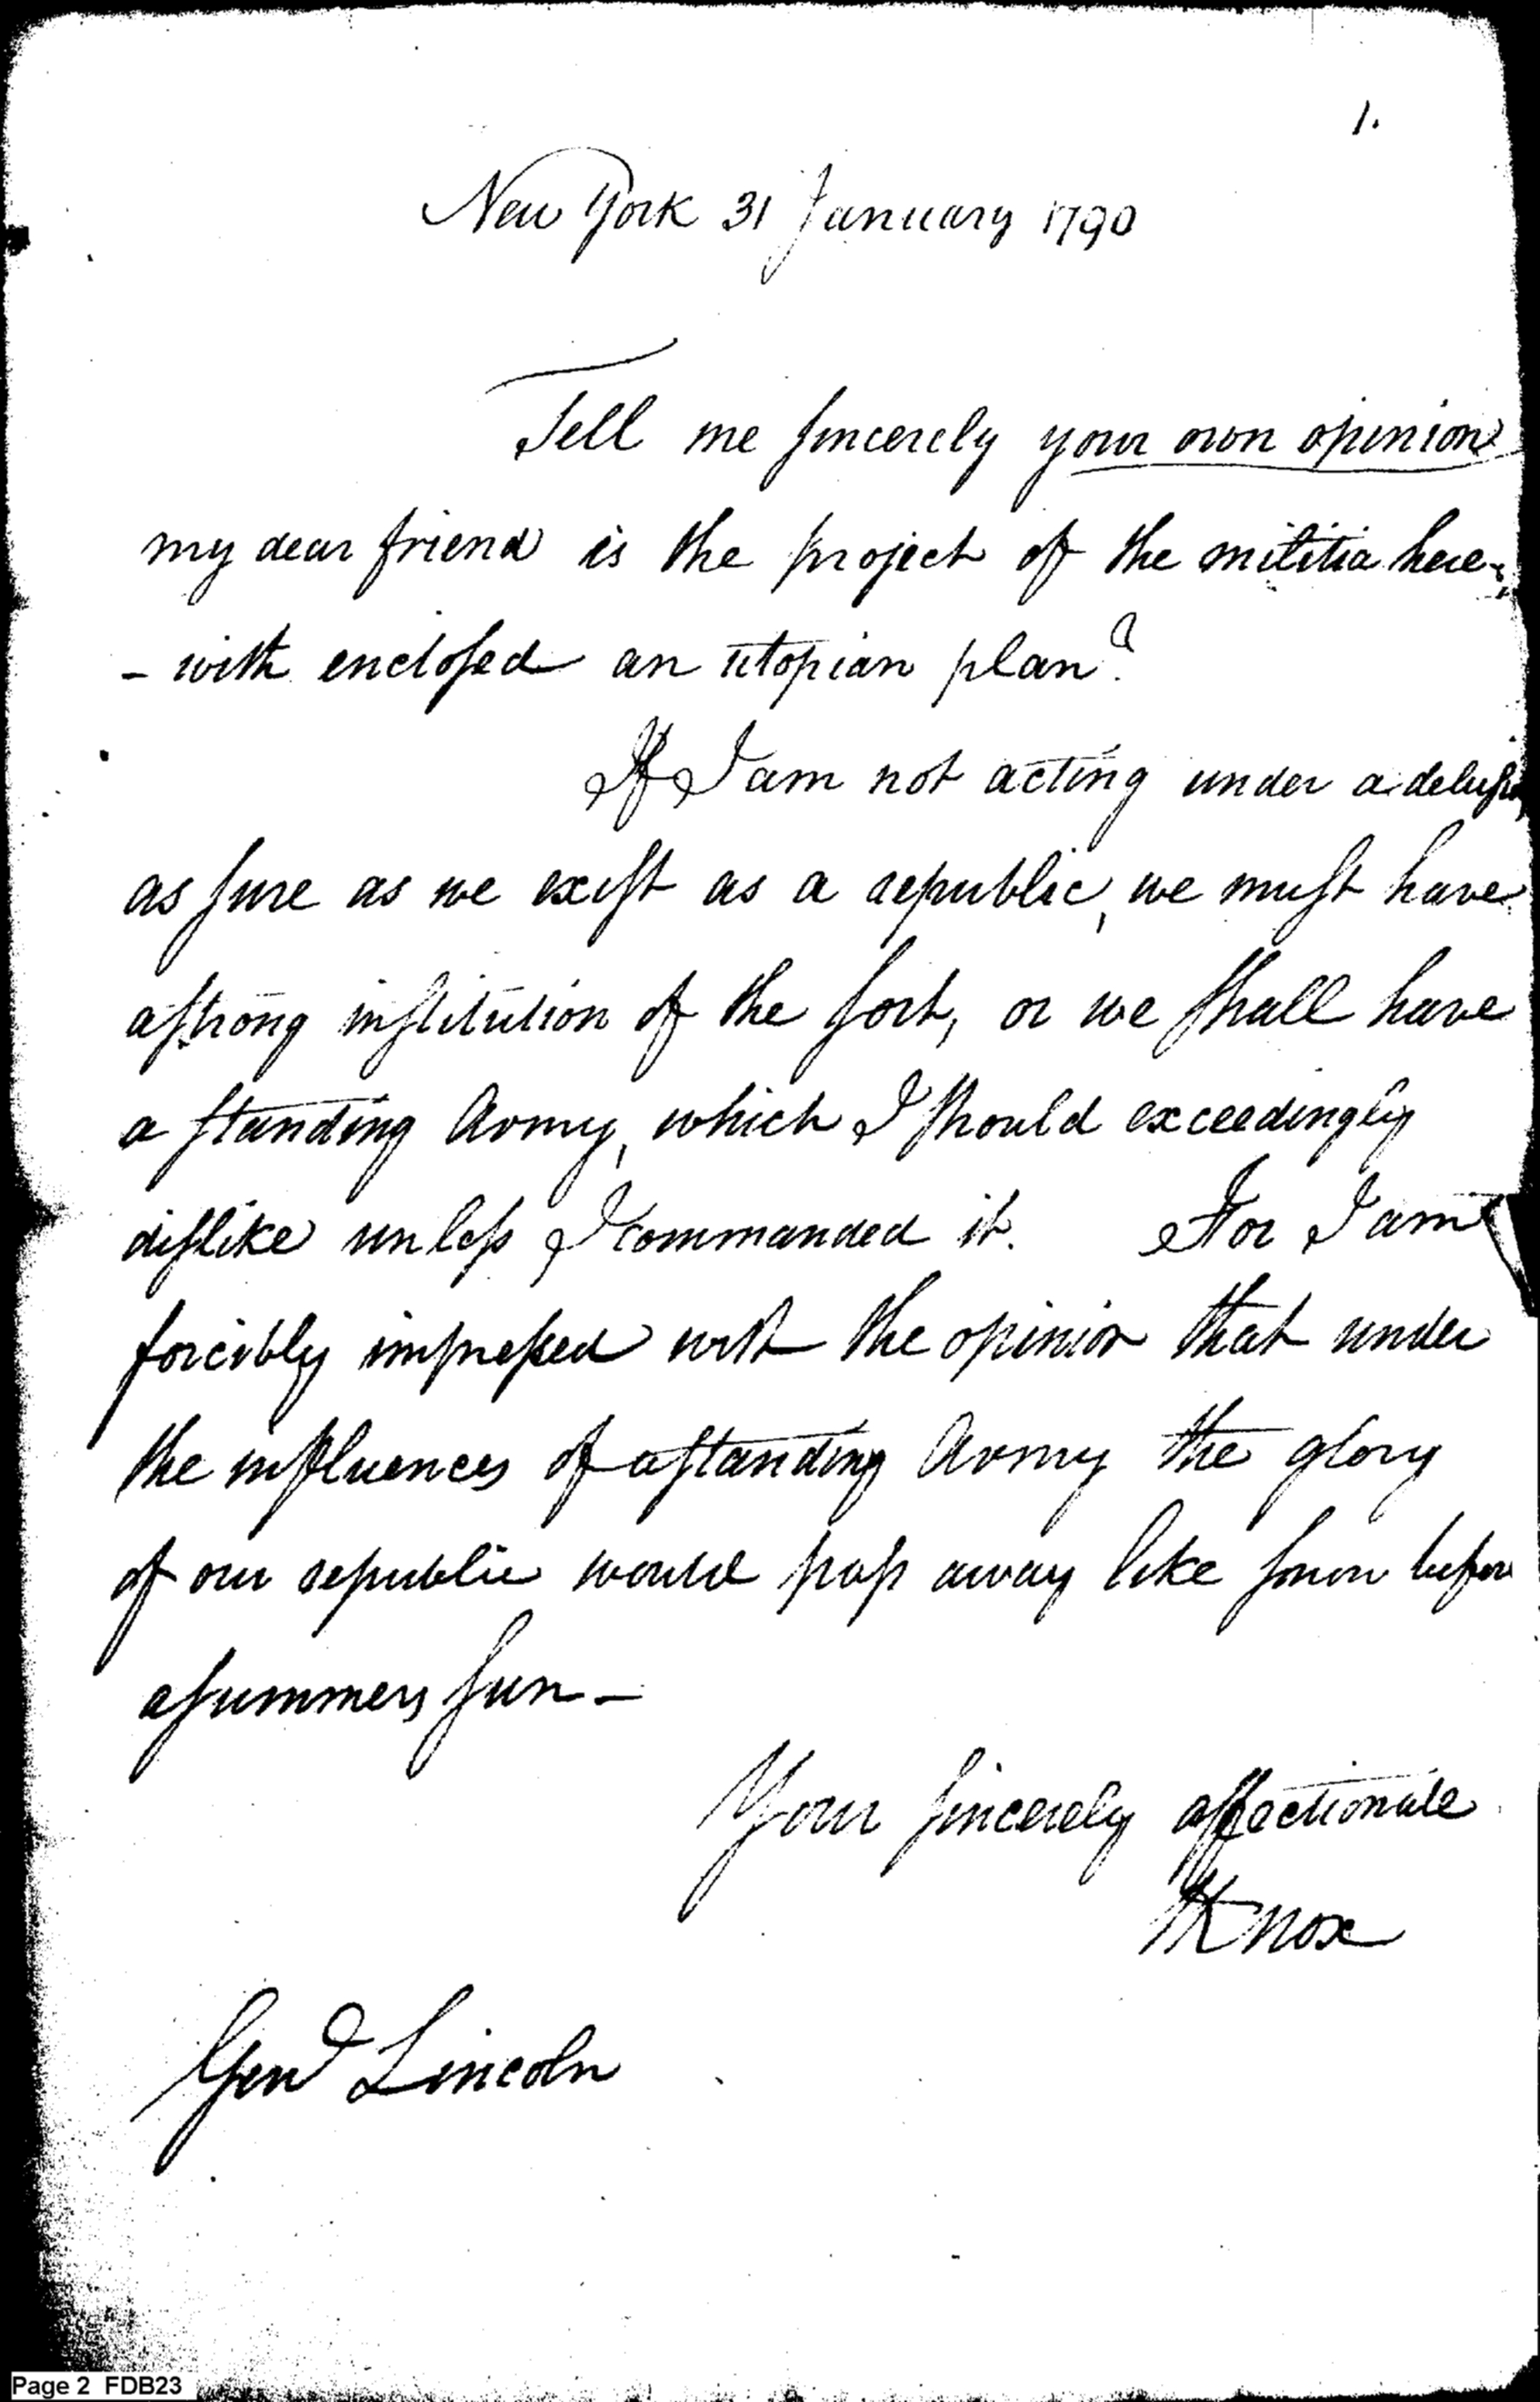 1.
New York 31 January 1790
Tell me sincerely your own opinion
my dear friend is the project of the militia here-
- with enclosed an utopian plan?
If I am not acting under a delusion,
as sure as we exist as a republic, we must have
a strong institution of the sort, or we shall have
a standing Army, which I should exceedingly
dislike unless I commanded it. For I am
forcibly impressed with the opinion that under
the influences of a standing Army the glory
of our republic would pass away like snow before
a summers sun -
Your sincerely affectionate
HKnox
Genl Lincoln
Page 2 FDB23